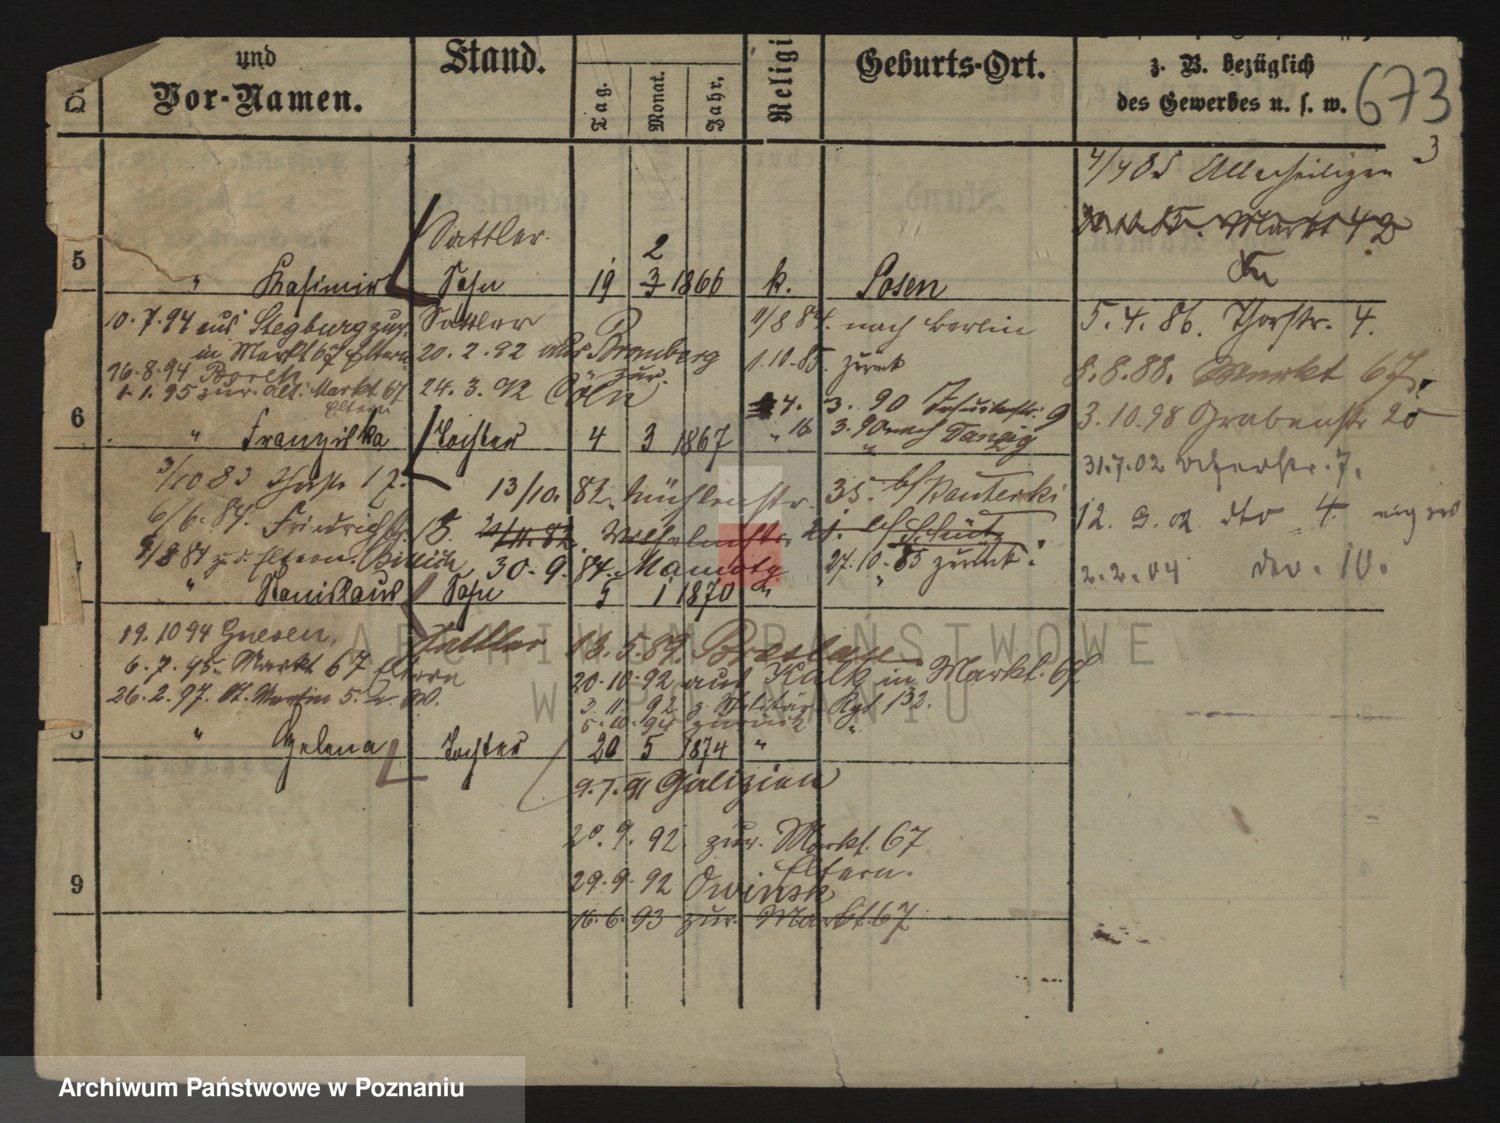 und
Vor-Namen.
Stand.
Tag.
Monat.
Jahr.
Religi
Geburts-Ort.
z. B. bezüglich
des Gewerbes u. s. w.
673
3
4/4 85 Allerheiligen
Markt 42
5 " Kasimir Sattler Sohn 19 3 2 1866 k. Posen
10.7.94 aus Stegburg zur.
in Markt 67 Eltern
16.8.94 Borek
1.1.95 zur. Alt. Markt 67
Eltern
Sattler
20.2.92 aus Bromberg
zur.
24.3.92 Cöln
11/8 84. nach Berlin
1.10.85. zurück
5.4.86. Thorstr. 4.
8.8.88. Markt 67.
6 " Franziska Tochter 4 3 1867 "
4. 3. 90 Jesuitenstr. 9
" 16. 3. 90 nach Danzig
3.10.98 Grabenstr 25
3/10 83
6/6. 84. Friedrichstr. 15.
z. d. Eltern.
13/10. 82. Mühlenstr. 35. b/
21/11. 82. Wilhelmstr. 21. b/ Schütz
30.9.84.
27.10.85 zurück.
31.7.02
12. 9. 02 dto 4
2.2.04 dto. 10.
" Stanislaus Sohn 5 1 1870 "
19.10 94 Gnesen,
6.7.95. Markt 67 Eltern
26.2.97. St. Martin 5.
Sattler 13.5.89. Breslau
20.10.92 aus Kalk in Markt. 67
3.11.92 z. Militär Rgt. 132.
5.10.94 zurück
" Helena Tochter 20 5 1874 " "
9.7.91 Galizien
20.9.92 zur. Markt. 67
Eltern.
29.9.92 Owinsk
9
16.6.93 zur. Markt. 67
ARCHIWUM PAŃSTWOWE
W POZNANIU
Archiwum Państwowe w Poznaniu